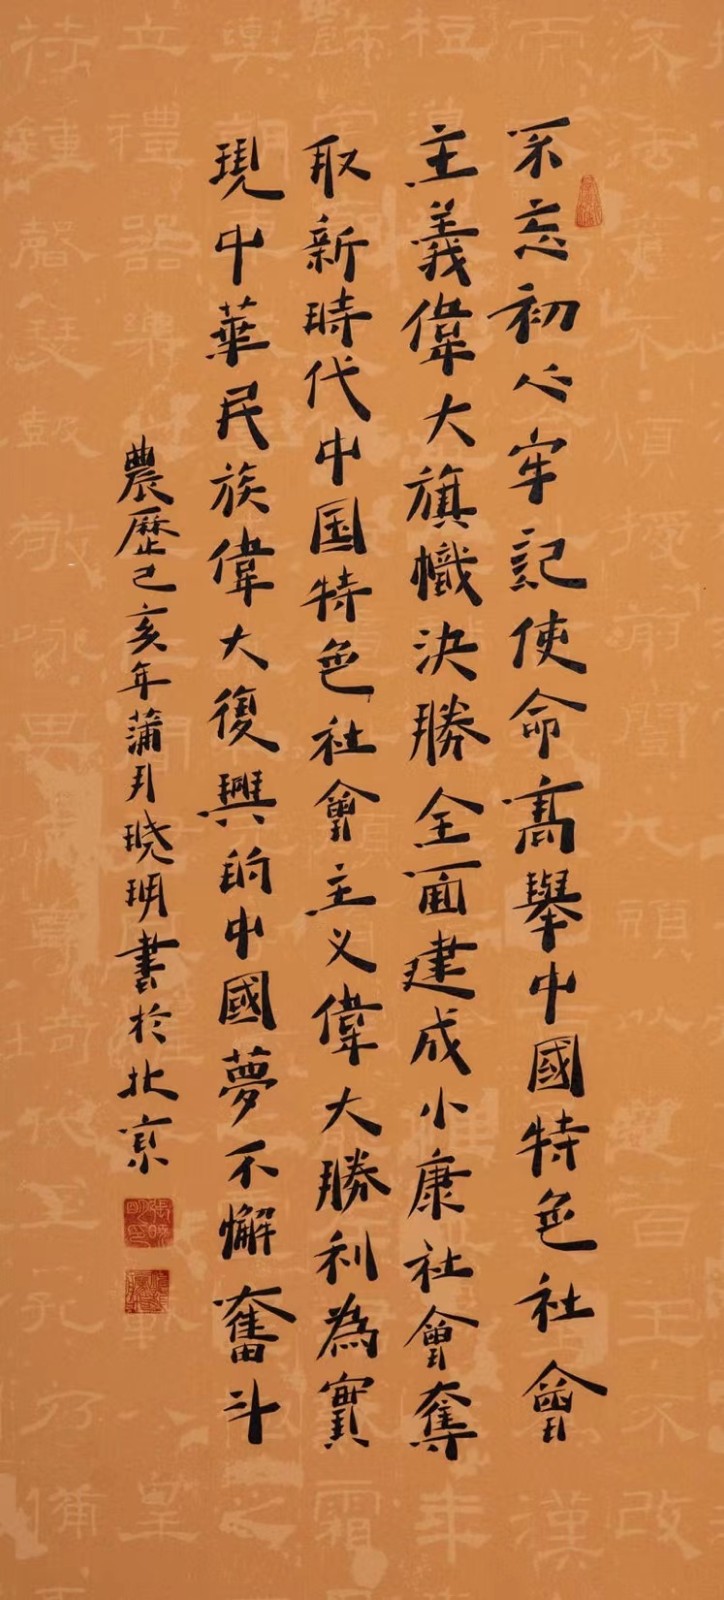 不忘初心牢記使命高舉中國特色社會
主義偉大旗幟決勝全面建成小康社會奪
取新時代中国特色社會主义偉大勝利為實
現中華民族偉大復興的中國夢不懈奮斗
農歷己亥年蒲月曉明書於北京